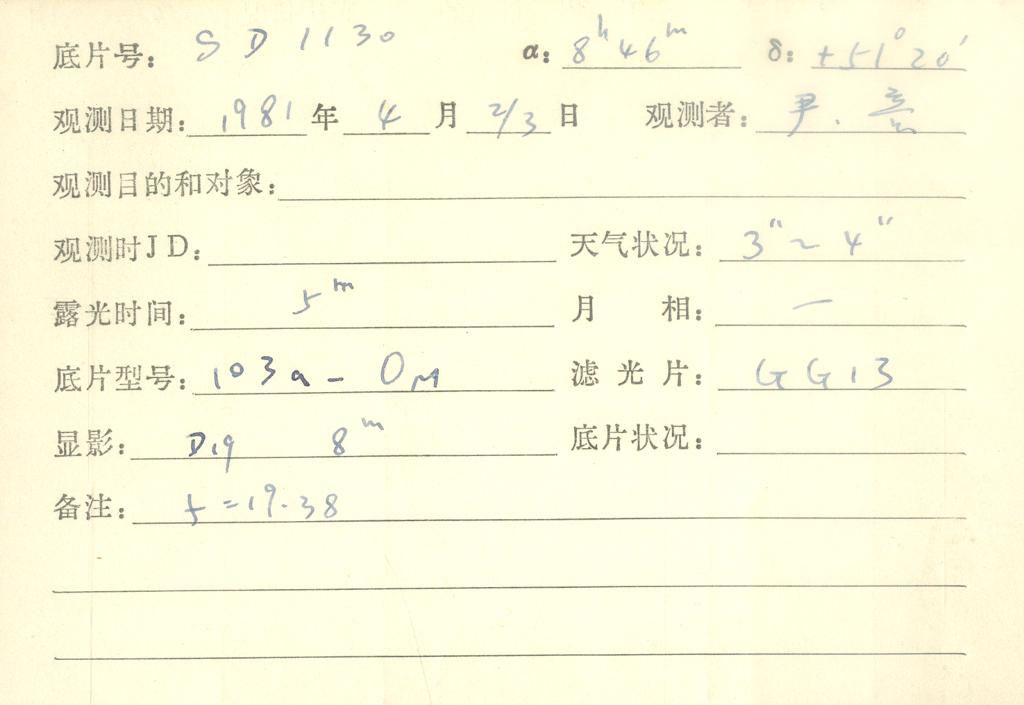 底片号: SD1130 α: 8h46m δ: +51°20′
观测日期: 1981年4月2/3日 观测者: 尹.
观测目的和对象:
观测时JD: 天气状况: 3"~4"
露光时间: 5m 月相: —
底片型号: 103a-OM 滤光片: GG13
显影: D19 8m 底片状况:
备注: =19.38